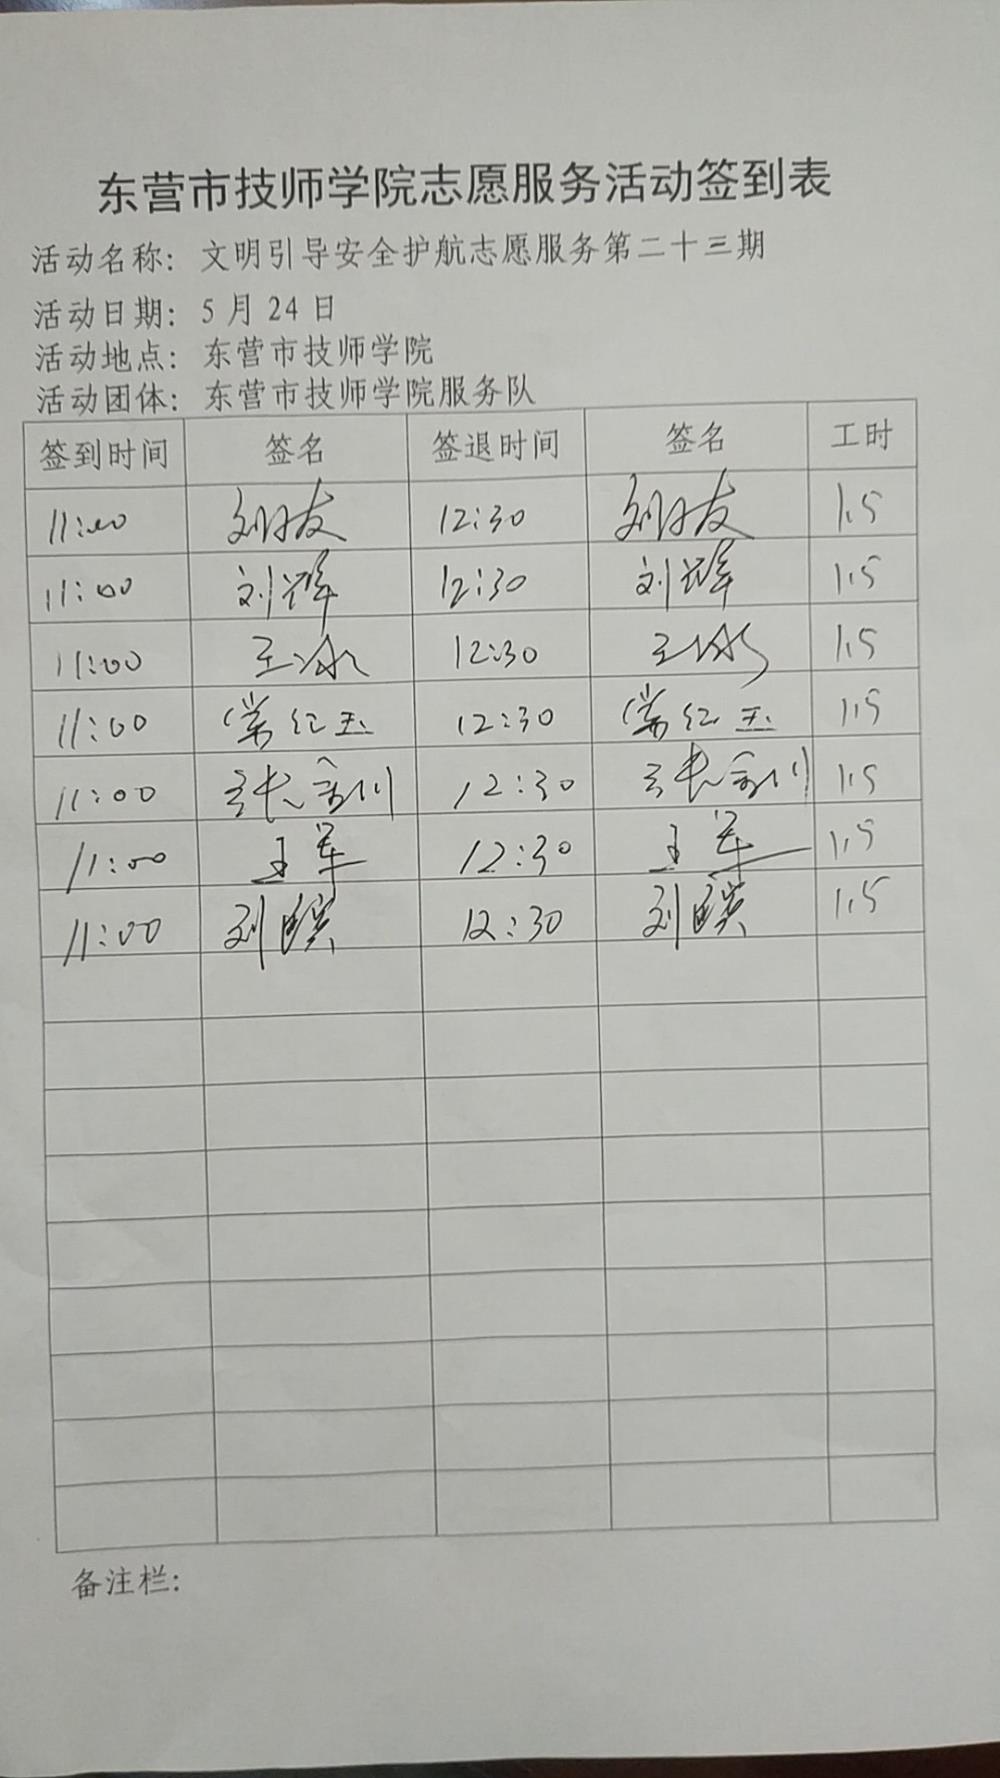 东营市技师学院志愿服务活动签到表
活动名称：文明引导安全护航志愿服务第二十三期
活动日期：5月24日
活动地点：东营市技师学院
活动团体：东营市技师学院服务队
签到时间 签名 签退时间 签名 工时
11:00 12:30 1.5
11:00 刘辉 12:30 刘辉 1.5
11:00 王冰 12:30 王冰 1.5
11:00 常红玉 12:30 常红玉 1.5
11:00 张 川 12:30 张 川 1.5
11:00 王军 12:30 王军 1.5
11:00 刘 12:30 刘 1.5
备注栏：